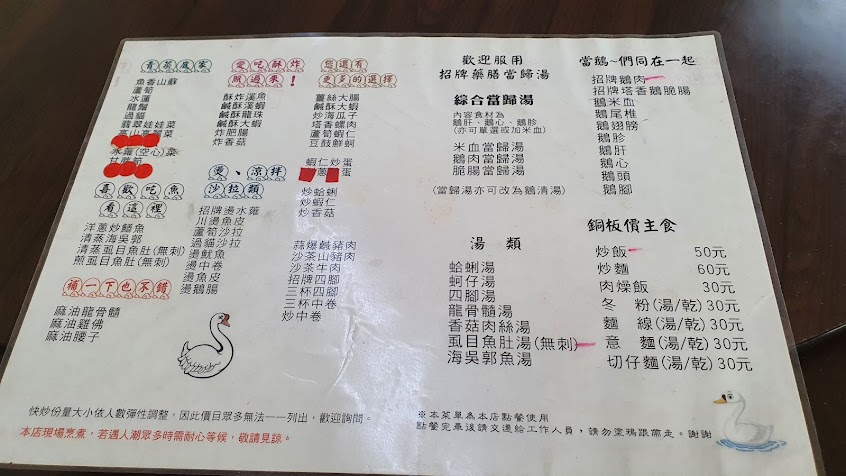 青菜底家
魚香山蘇
蘆筍
水蓮
龍鬚
過貓
翡翠娃娃菜
高山高麗菜
水薙(空心)菜
甘蔗筍
喜歡吃魚
看這裡
洋蔥炒鱔魚
清蒸海吳郭
清蒸虱目魚肚(無刺)
煎虱目魚肚(無刺)
補一下也不錯
麻油龍骨髓
麻油雞佛
麻油腰子
愛吃酥炸
照過來!
酥炸溪魚
鹹酥溪蝦
鹹酥龍珠
鹹酥大蝦
炸肥腸
炸香菇
燙、涼拌
沙拉類
招牌燙水薙
川燙魚皮
蘆筍沙拉
過貓沙拉
燙魷魚
燙中卷
燙魚皮
燙鵝腸
您還有
更多的選擇
薑絲大腸
鹹酥大蝦
炒海瓜子
塔香螺肉
蘆筍蝦仁
豆鼓鮮蚵
蝦仁炒蛋
炒蛤蜊
炒蝦仁
炒香菇
蒜爆鹹豬肉
沙茶山豬肉
沙茶牛肉
招牌四腳
三杯四腳
三杯中卷
炒中卷
歡迎服用
招牌藥膳當歸湯
綜合當歸湯
內容食材為
鵝肝、鵝心、鵝胗
(亦可單選或加米血)
米血當歸湯
鵝肉當歸湯
脆腸當歸湯
(當歸湯亦可改為鵝清湯)
湯 類
蛤蜊湯
蚵仔湯
四腳湯
龍骨髓湯
香菇肉絲湯
虱目魚肚湯(無刺)
海吳郭魚湯
當鵝~們同在一起
招牌鵝肉
招牌塔香鵝脆腸
鵝米血
鵝尾椎
鵝翅膀
鵝胗
鵝肝
鵝心
鵝頭
鵝腳
銅板價主食
炒飯 50元
炒麵 60元
肉燥飯 30元
冬 粉(湯/乾)30元
麵 線(湯/乾)30元
意 麵(湯/乾)30元
切仔麵(湯/乾)30元
快炒份量大小依人數彈性調整,因此價目眾多無法一一列出,歡迎詢問。
本店現場烹煮,若遇人潮眾多時需耐心等候,敬請見諒。
※本菜單為本店點餐使用
點餐完畢後請交還給工作人員,請勿塗鴉跟帶走。謝謝